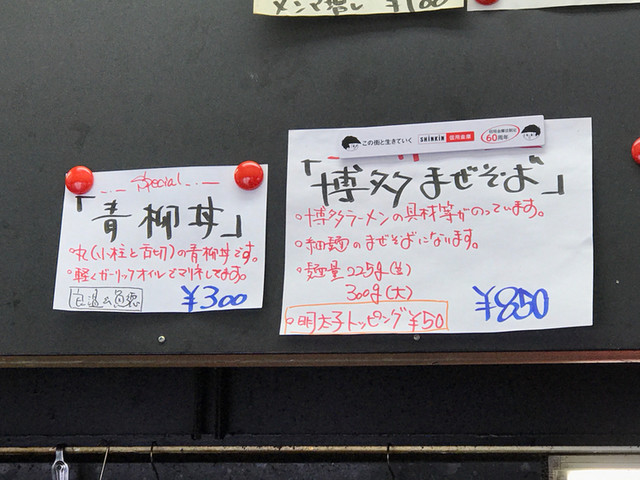 メンマ増し ¥100
Special
「青柳丼」
・丸(小柱と舌切)の青柳丼です。
・軽くガーリックオイルでマリネしてます。
¥300
この街と生きていく SHINKIN 信用金庫 60周年
「博多まぜそば」
・博多ラーメンの具材等がのっています。
・細麺のまぜそばになります。
・麺量 225g(並)
300g(大)
¥850
・明太子トッピング ¥50